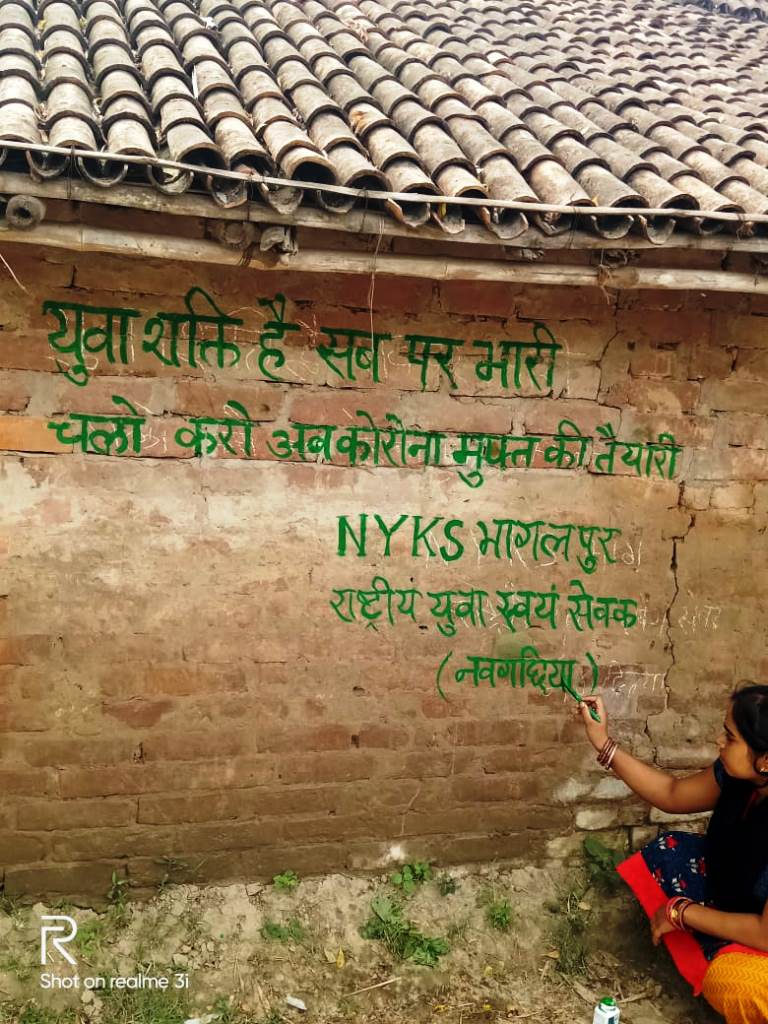 युवा शक्ति है सब पर भारी
चलो करो अब कोरोना मुक्त की तैयारी
NYKS भागलपुर
राष्ट्रीय युवा स्वयं सेवक
(नवगछिया)
R
Shot on realme 3i